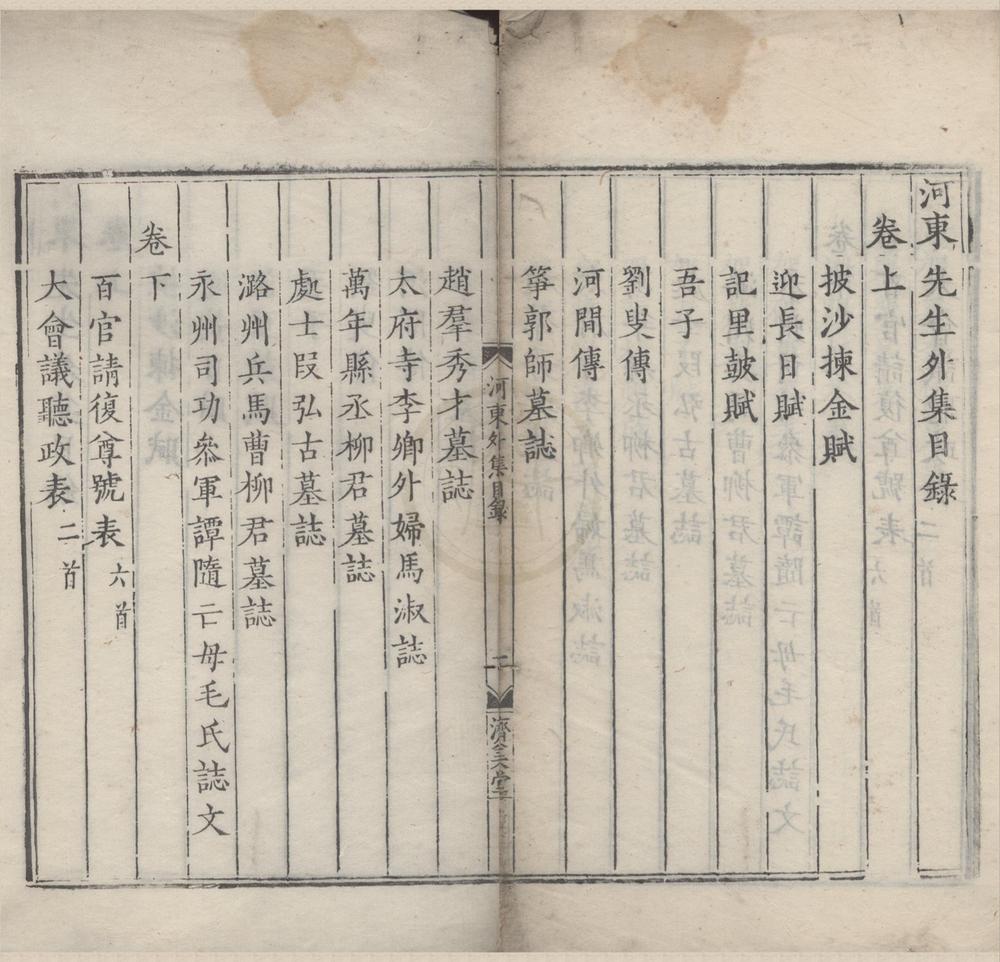 河東先生外集目錄
卷上
披沙揀金賦
迎長日賦
記里皷賦
吾子
劉叟傳
河間傳
箏郭師墓誌
河東外集目錄
二
濟美堂
趙羣秀才墓誌
太府寺李卿外婦馬淑誌
萬年縣丞柳君墓誌
處士叚弘古墓誌
潞州兵馬曹柳君墓誌
永州司功叅軍譚隨亡母毛氏誌文
卷下
百官請復尊號表六首
大會議聽政表二首